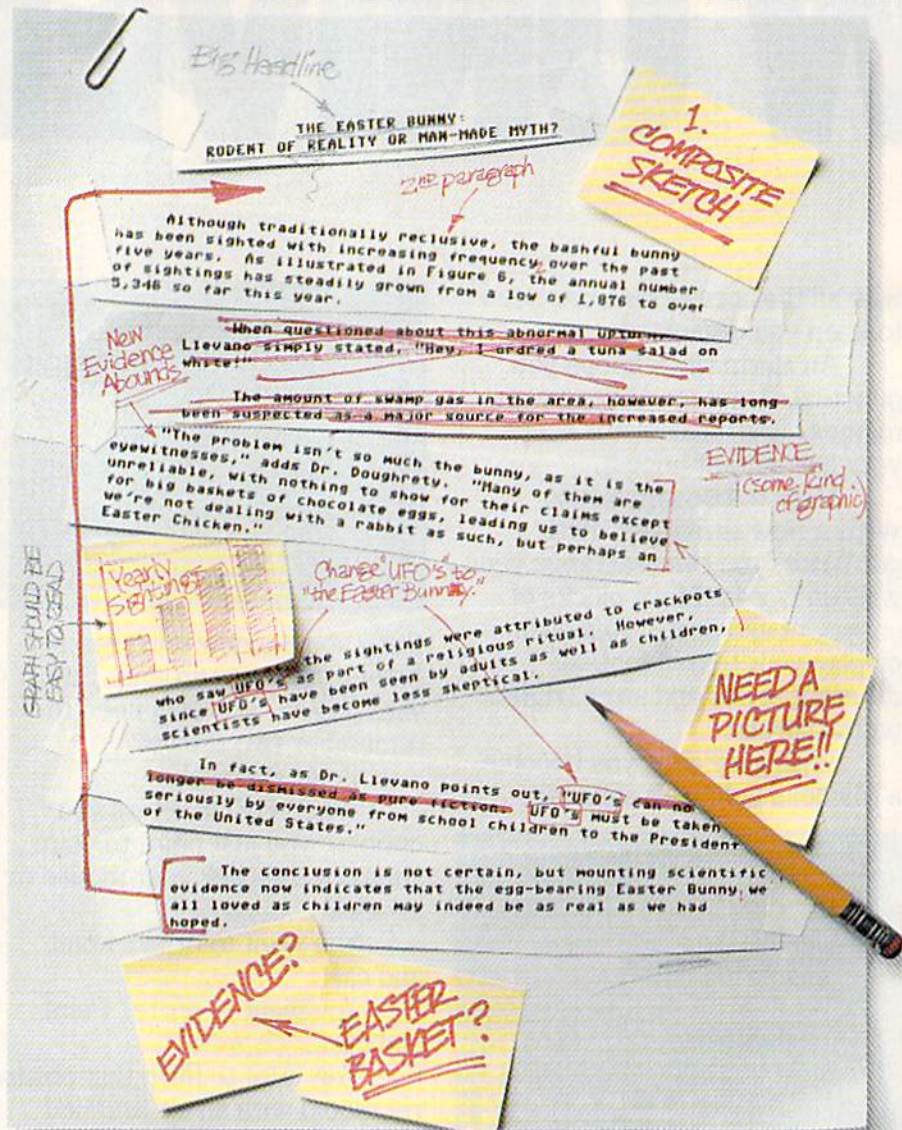 Big Headline
THE EASTER BUNNY:
RODENT OF REALITY OR MAN-MADE MYTH?
1.
COMPOSITE
SKETCH
2ND paragraph
Although traditionally reclusive, the bashful bunny
has been sighted with increasing frequency over the past
five years. As illustrated in Figure 6, the annual number
2
of sightings has steadily grown from a low of 1,876 to over
5,346 so far this year.
When questioned about this abnormal upturn,
Llevano simply stated, "Hey, I ordred a tuna salad on
white!"
New
Evidence
Abounds
The amount of swamp gas in the area, however, has long
been suspected as a major source for the increased reports.
"The problem isn't so much the bunny, as it is the
eyewitnesses," adds Dr. Doughrety. "Many of them are
unreliable, with nothing to show for their claims except
for big baskets of chocolate eggs, leading us to believe
we're not dealing with a rabbit as such, but perhaps an
Easter Chicken."
EVIDENCE
(some kind
of graphic)
GRAPH SHOULD BE
EASY TO READ
Yearly
Sightings
Change "UFO's" to
"the Easter Bunny."
the sightings were attributed to crackpots
who saw UFO's as part of a religious ritual. However,
since UFO's have been seen by adults as well as children,
scientists have become less skeptical.
NEED A
PICTURE
HERE!!
In fact, as Dr. Llevano points out, "UFO's can no
longer be dismissed as pure fiction. UFO's must be taken
seriously by everyone from school children to the President
of the United States."
The conclusion is not certain, but mounting scientific
evidence now indicates that the egg-bearing Easter Bunny we
all loved as children may indeed be as real as we had
hoped.
EVIDENCE?
EASTER
BASKET?